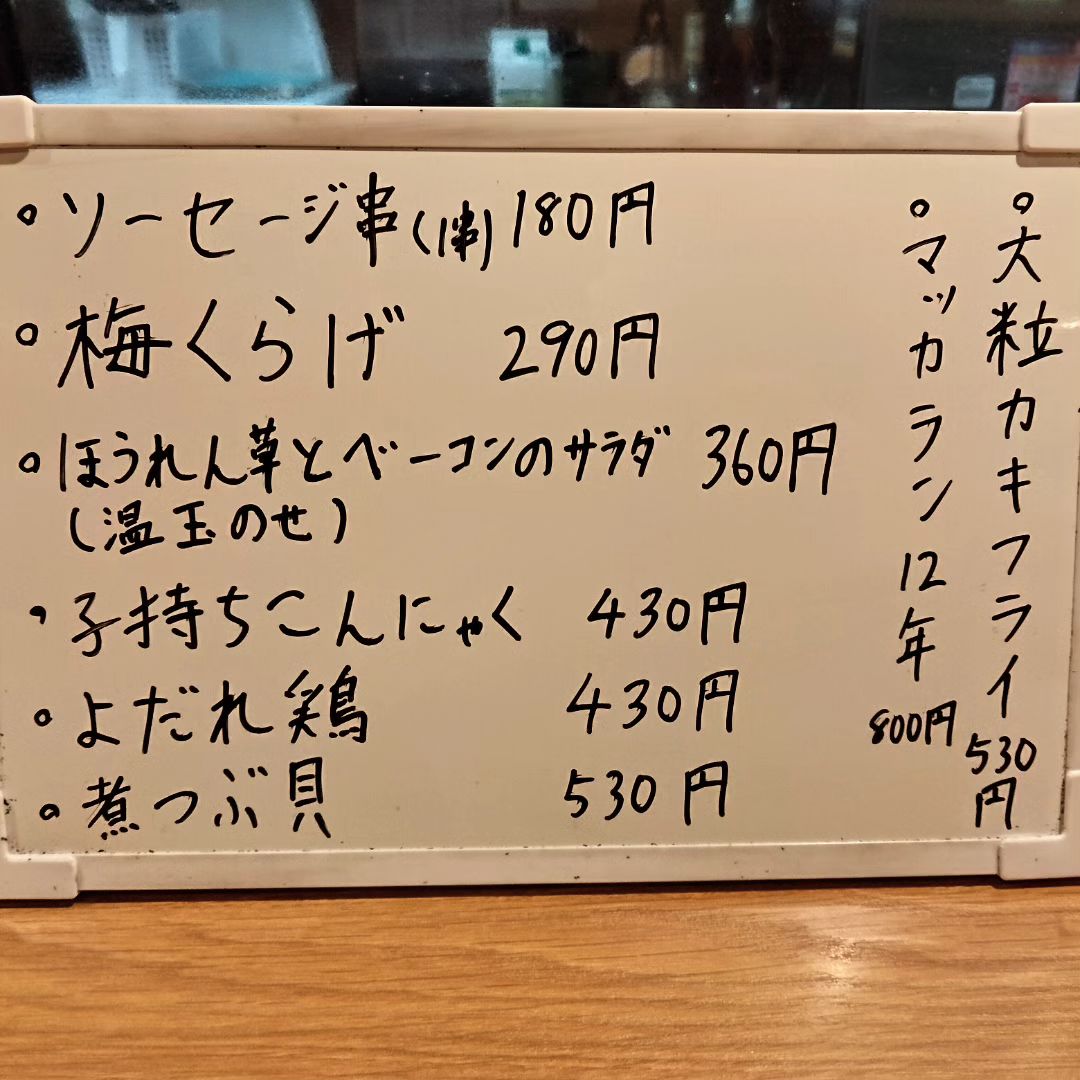 ソーセージ串(1串) 180円
梅くらげ 290円
ほうれん草とベーコンのサラダ 360円
(温玉のせ)
子持ちこんにゃく 430円
よだれ鶏 430円
煮つぶ貝 530円
大粒カキフライ 530円
マッカラン12年 800円